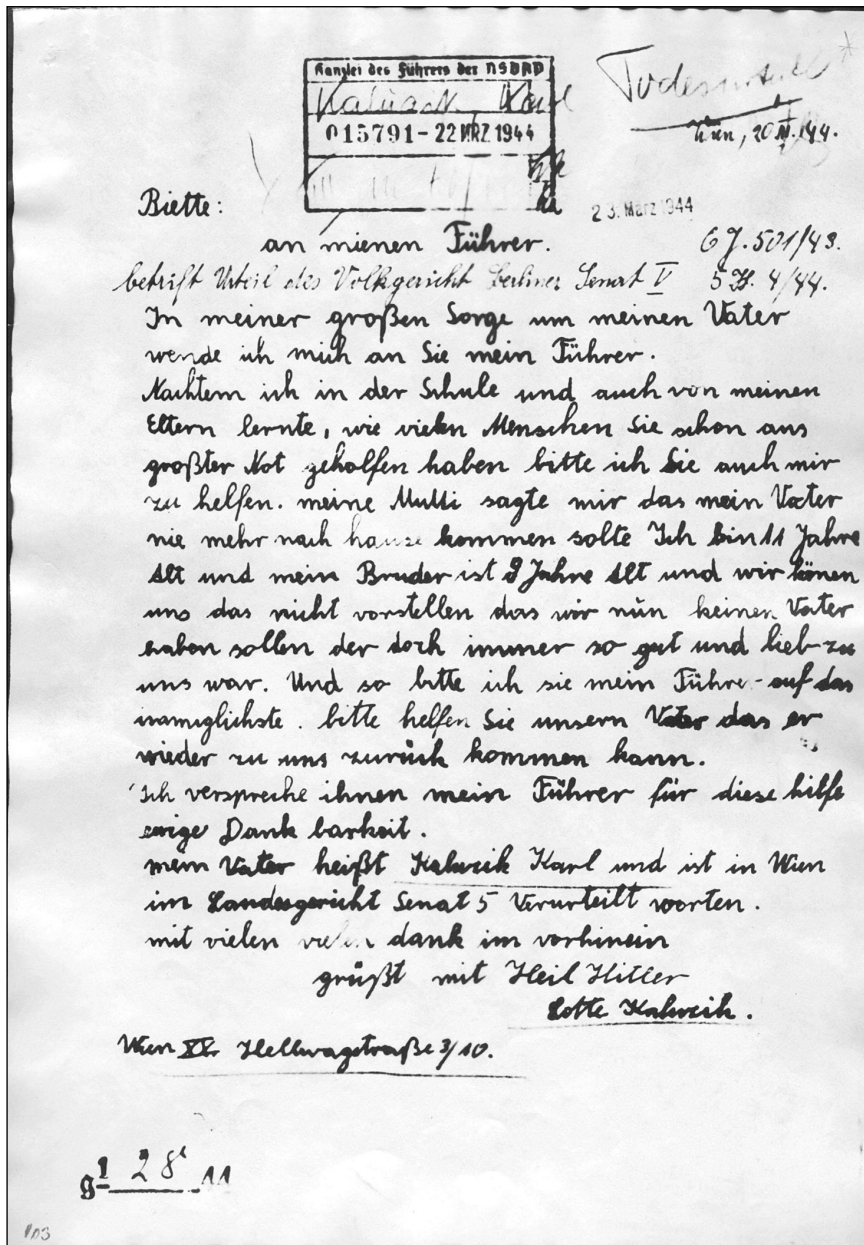 Kanzlei des Führers der NSDAP
Todesurteil
015791-22 MRZ 1944
Wien, 20. III. 44.
23. März 1944
Biette:
an mienen Führer.
6 J. 501/43.
betrift Urteil des Volkgericht Berliner Senat V 5 H. 4/44.
In meiner großen Sorge um meinen Vater
wende ich mich an Sie mein Führer.
Nachtem ich in der Schule und auch von meinen
Eltern lernte, wie vielen Menschen Sie schon aus
großter Not geholfen haben bitte ich Sie auch mir
zu helfen. meine Mutti sagte mir das mein Vater
nie mehr nach hause kommen solte Ich bin 11 Jahre
Alt und mein Bruder ist 9 Jahre Alt und wir könen
uns das nicht vorstellen das wir nün keinen Vater
haben sollen der doch immer so gut und lieb zu
uns war. Und so bitte ich sie mein Führer auf das
inamiglichste. bitte helfen Sie unsern Vater das er
wieder zu uns zurück kommen kann.
Ich verspreche ihnen mein Führer für diese hilfe
ewige Dank barkeit.
mein Vater heißt Kalweik Karl und ist in Wien
im Landesgericht Senat 5 Verurteilt worten.
mit vielen vielen dank im vorhinein
grüßt mit Heil Hitler
Lotte Kalweik.
Wien XX. Hellwagstraße 3/10.
g 1 28 11
103